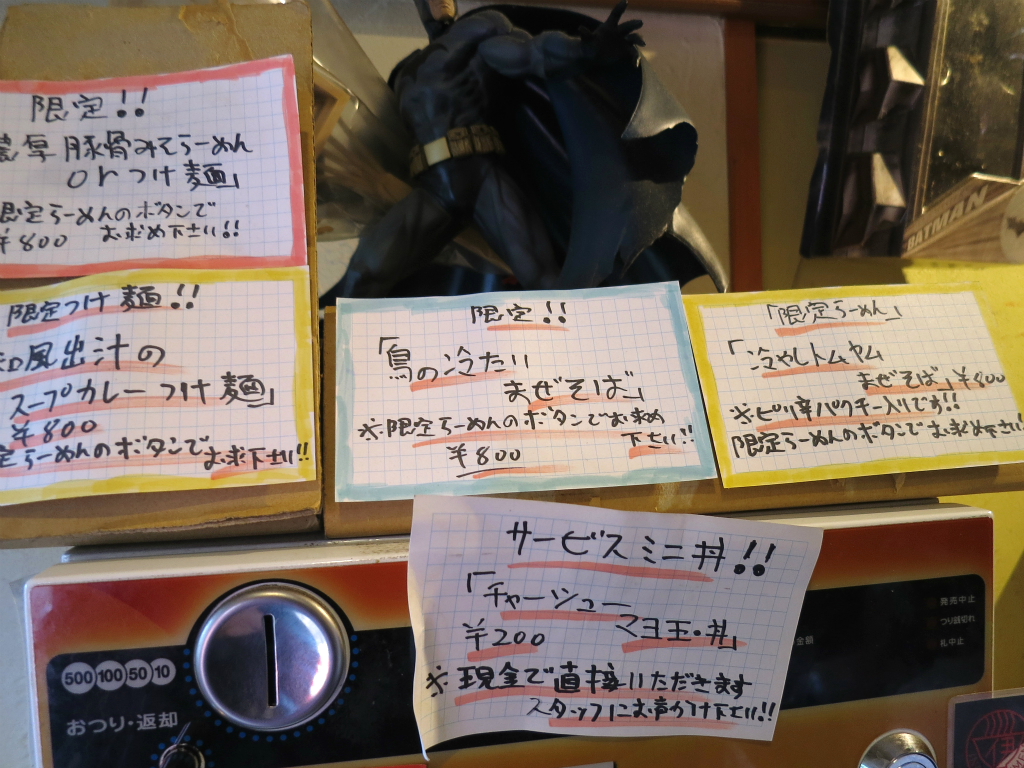 限定!!
濃厚豚骨みそらーめん
orつけ麺」
限定らーめんのボタンで
¥800 お求め下さい!!
限定つけ麺!!
和風出汁の
スープカレーつけ麺」
¥800
限定らーめんのボタンでお求下さい!!
限定!!
「鳥の冷たい
まぜそば」
※限定らーめんのボタンでお求め
下さい!!
¥800
「限定らーめん」
「冷やしトムヤム
まぜそば」¥800
※ピリ辛パクチー入りです!!
限定らーめんのボタンでお求め下さい!!
サービスミニ丼!!
「チャーシュー
マヨ玉・丼」
¥200
※現金で直接いただきます
スタッフにお声がけ下さい!!
500 100 50 10
おつり・返却
金額
発売中止
つり銭切れ
札中止
BATMAN
伊